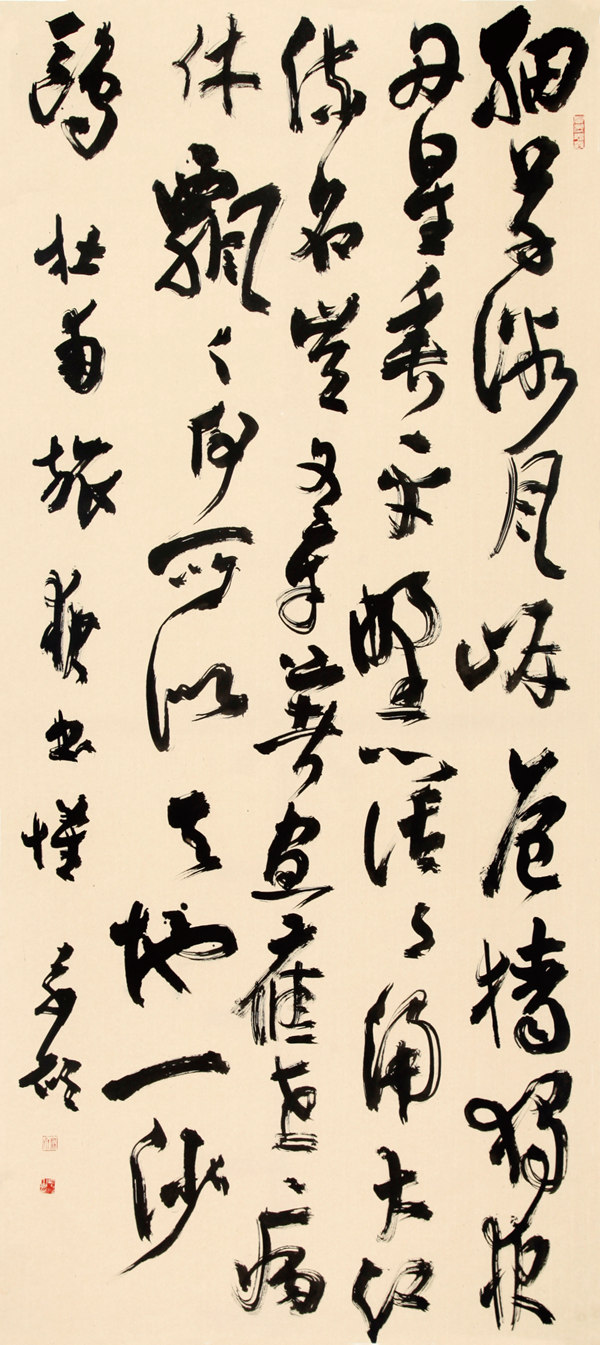 細草微風岸危檣獨夜
舟星垂平野闊月涌大江
流名豈文章著官應老病
休飄々何所似天地一沙
鷗 杜甫旅夜書懷